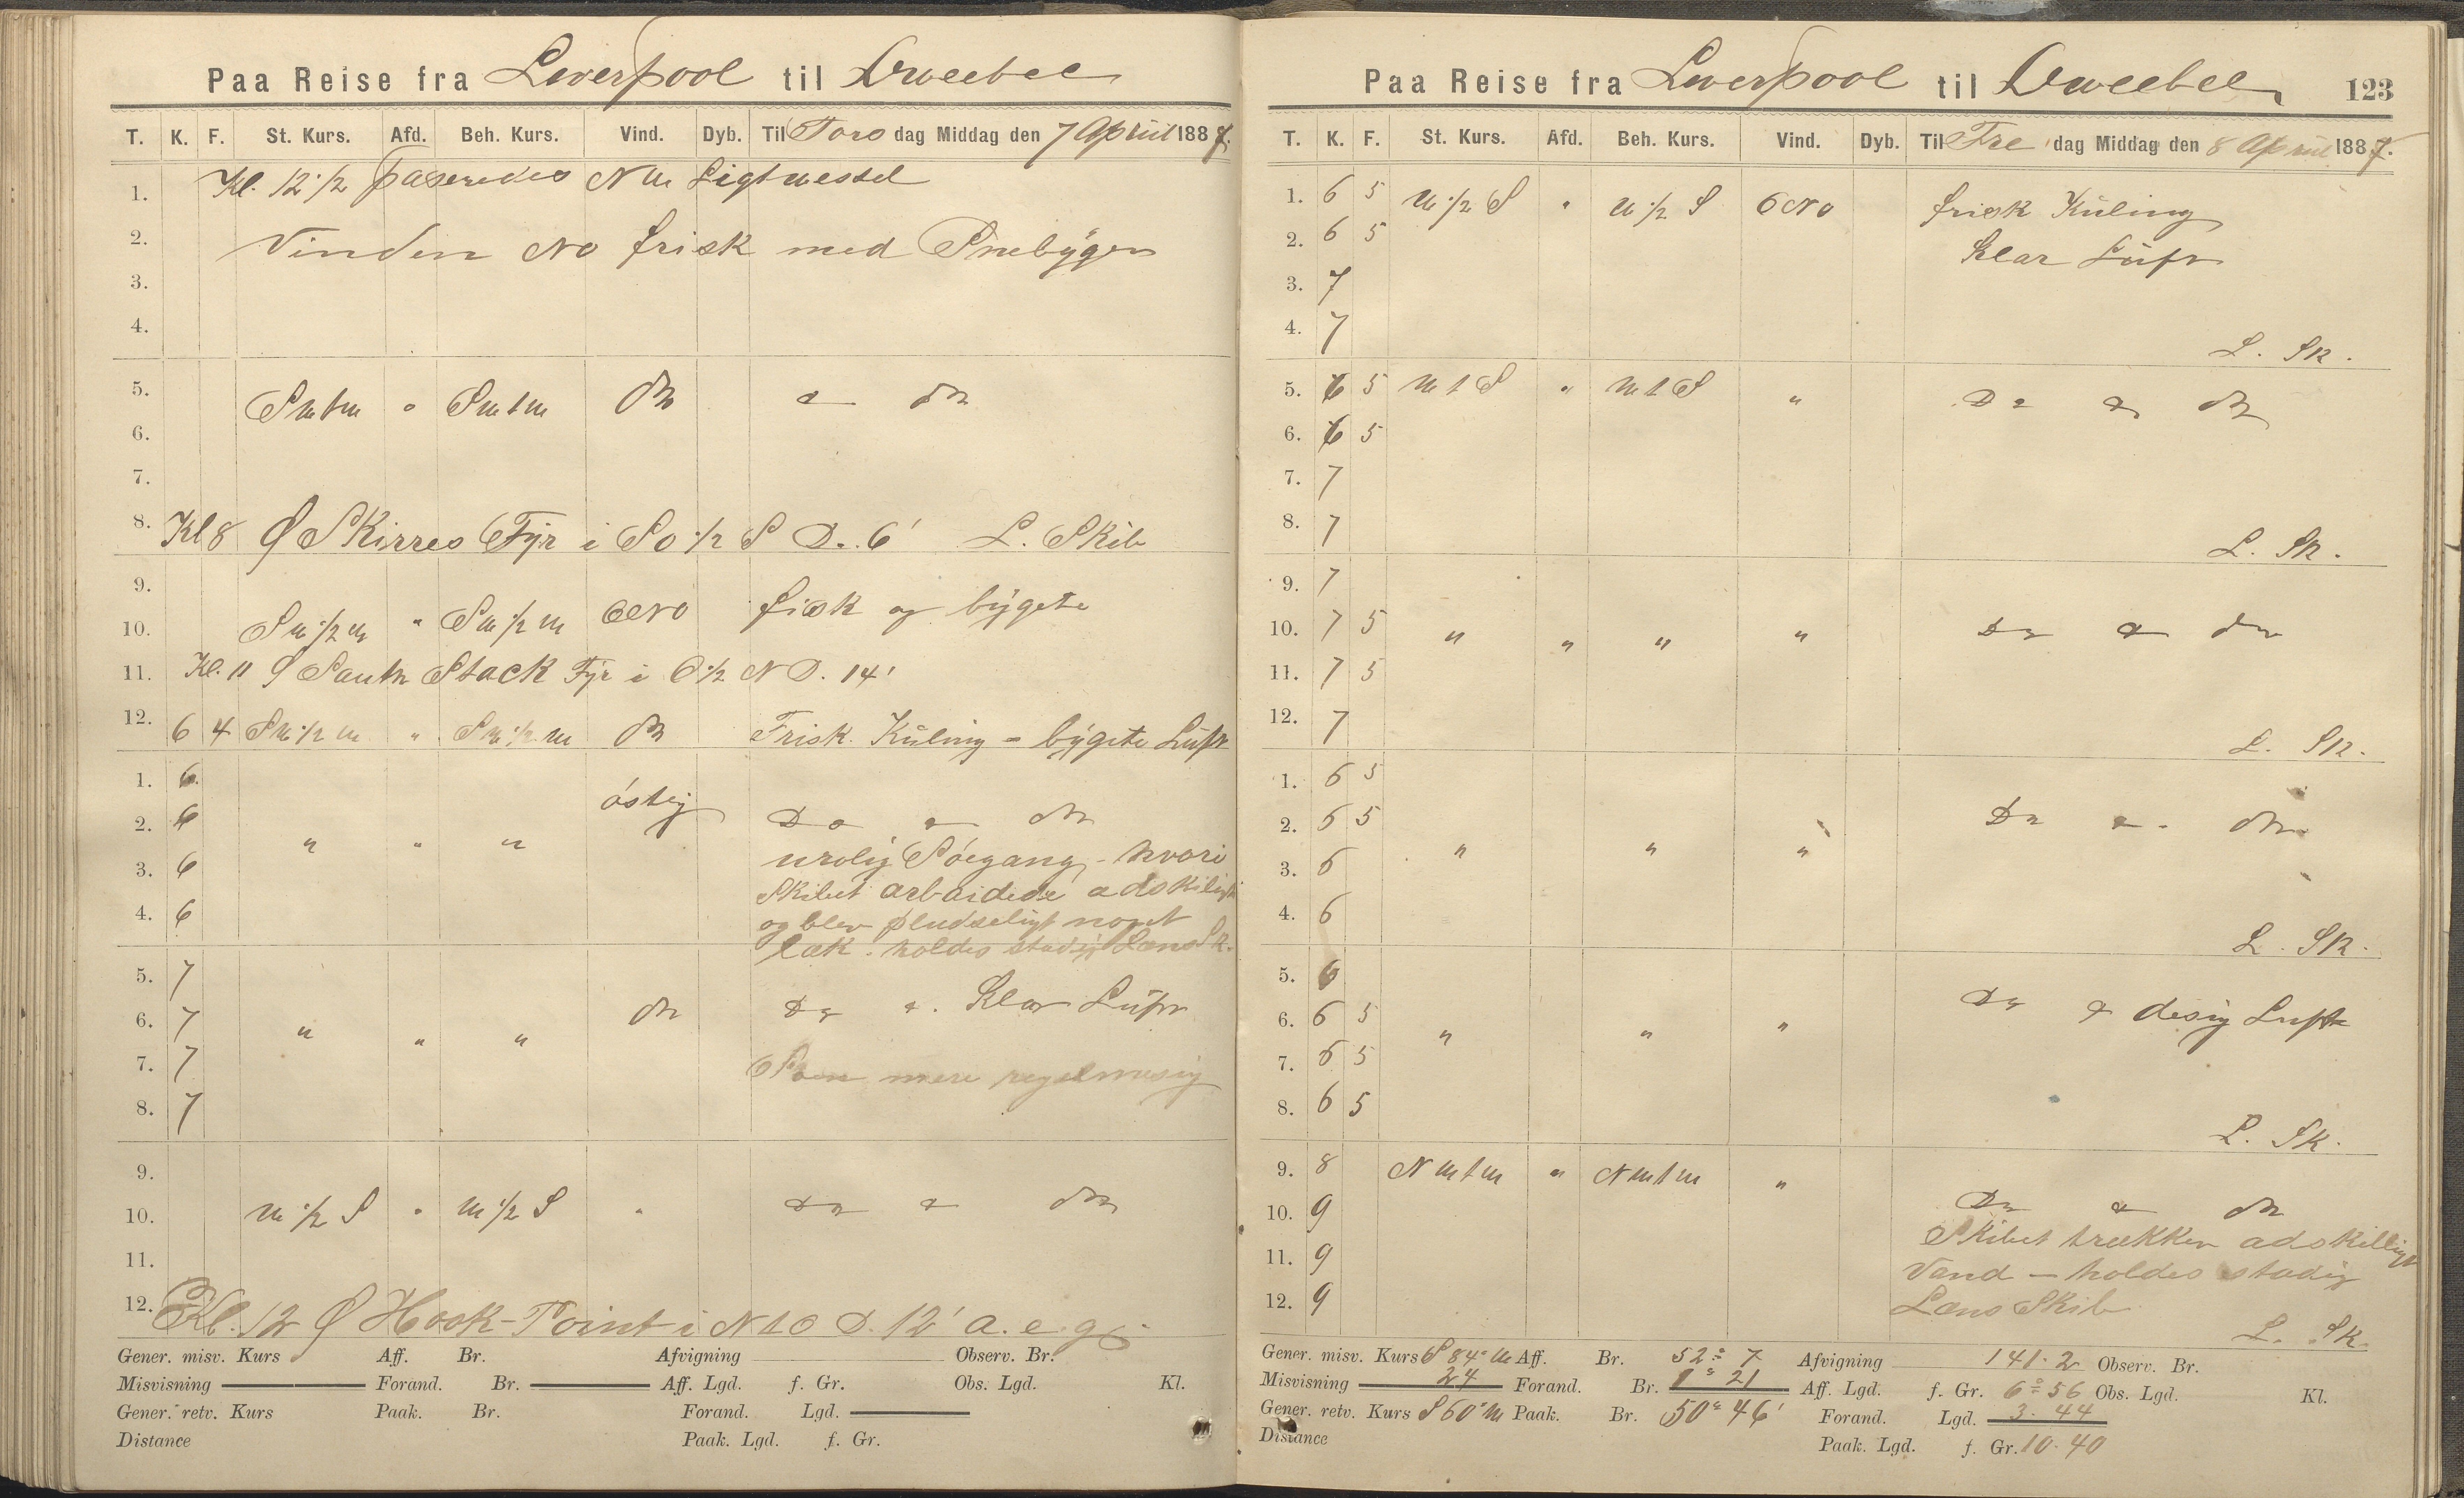 Paa Reise fra Liverpool til Qweebec
T. K. F. St. Kurs. Afd. Beh. Kurs. Vind. Dyb. Til Tors dag Middag den 7 April 1887.
1. Kl. 12 1/2 paseredes NW Ligtwessel
2. Vinden NO frisk med Snebyger
3.
4.
5. SWtW " SWtW do & do
6.
7.
8. Kl 8 Ø SKirres Fyr i SO 1/2 S D. 6' L. Skib
9.
10. SW 1/2 W " SW 1/2 W ONO fisk og bygete
11. Kl. 11 Ø South Stack Fyr i O 1/2 N D. 14'
12. 6 4 SW 1/2 W " SW 1/2 W do Frisk Kuling - bygete Luft
1. 6
2. 6 " " " östlig Do & do
urolig Söegang - hvori
3. 6 Skibet arbaidede adskiligt
4. 6 og blev pludseligt noget
læk. holdes stadig Læns Sk.
5. 7
6. 7 " " " do Do & Klar Luft
7. 7 mere regelmesig
8. 7
9.
10. W 1/2 S " W 1/2 S " Do & do
11.
12. Kl. 12 Ø Hook-Point i NtO D. 12' a. e. g.
Gener. misv. Kurs Aff. Br. Afvigning Observ. Br.
Misvisning Forand. Br. Aff. Lgd. f. Gr. Obs. Lgd. Kl.
Gener. retv. Kurs Paak. Br. Forand. Lgd.
Distance Paak. Lgd. f. Gr.
Paa Reise fra Liverpool til Qweebec 123
T. K. F. St. Kurs. Afd. Beh. Kurs. Vind. Dyb. Til Fre dag Middag den 8 April 1887.
1. 6 5 W 1/2 S " W 1/2 S ONO frisk Kuling
2. 6 5 Klar Luft
3. 7
4. 7
L. Sk.
5. 6 5 WtS " WtS " Do & do
6. 6 5
7. 7
8. 7
L. Sk.
9. 7
10. 7 5 " " " " Do & do
11. 7 5
12. 7
L. Sk.
1. 6 5
2. 6 5 " " " Do & do
3. 6
4. 6
L. Sk.
5. 6
6. 6 5 " " " Do & disig Luft
7. 6 5
8. 6 5
L. Sk.
9. 8 NWtW " NWtW "
10. 9 Do & do
Skibet trækker adskilligt
11. 9 Vand - holdes stadig
12. 9 Læns Skib
L. Sk.
Gener. misv. Kurs S 84° W Aff. Br. 52° 7 Afvigning 141.2 Observ. Br.
Misvisning 24 Forand. Br. 1° 21 Aff. Lgd. f. Gr. 6° 56 Obs. Lgd. Kl.
Gener. retv. Kurs S 60° W Paak. Br. 50° 46' Forand. Lgd. 3. 44
Distance Paak. Lgd. f. Gr. 10. 40